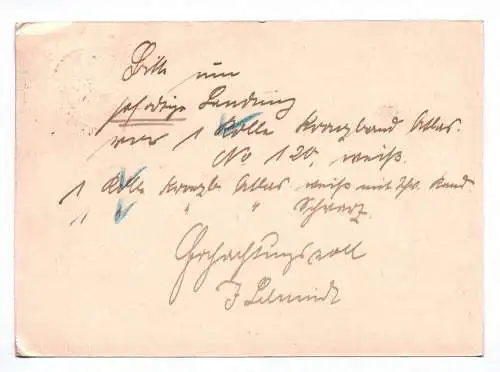 Bitte um
sofortige Sendung
von 1 Rolle Kranzband Atlas.
No 120, weiß.
1 Rolle Kranzb. Atlas weiß mit schw. Rand
1 " " " Schwarz.
Hochachtungsvoll
F Schmidt